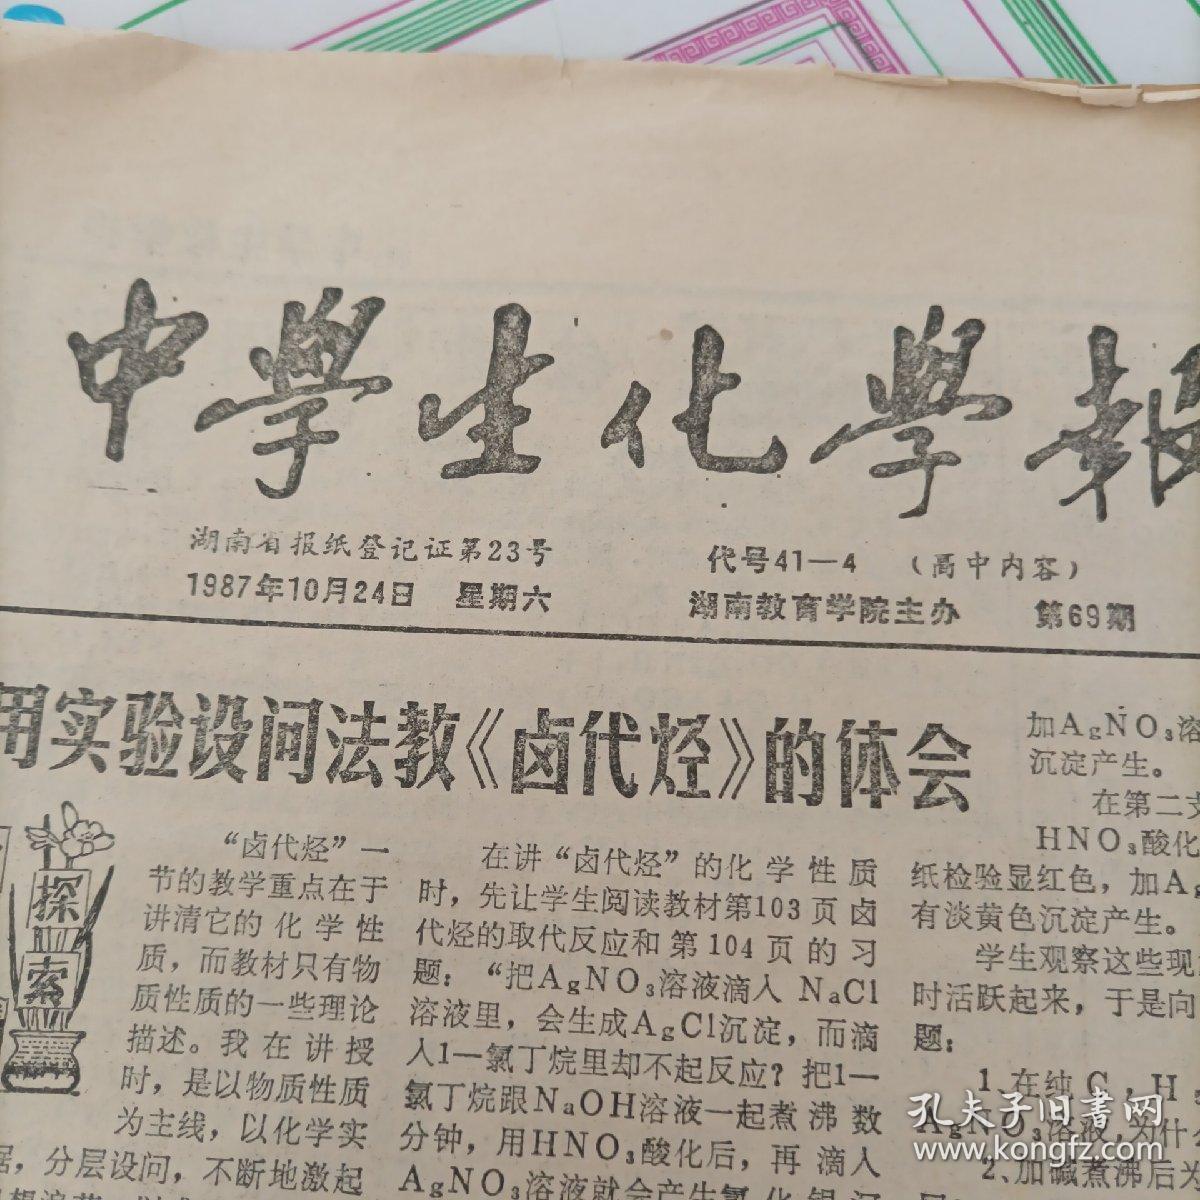 中學生化學報
湖南省报纸登记证第23号
代号41—4 （高中内容）
1987年10月24日 星期六
湖南教育学院主办 第69期
用实验设问法教《卤代烃》的体会
探索
“卤代烃”一
节的教学重点在于
讲清它的化学性
质，而教材只有物
质性质的一些理论
描述。我在讲授
时，是以物质性质
为主线，以化学实
，分层设问，不断地激起
在讲“卤代烃”的化学性质
时，先让学生阅读教材第103页卤
代烃的取代反应和第104页的习
题：“把AgNO₃溶液滴入 NaCl
溶液里，会生成AgCl沉淀，而滴
入1—氯丁烷里却不起反应？把1—
氯丁烷跟NaOH溶液一起煮沸数
分钟，用HNO₃酸化后，再滴入
AgNO₃溶液就会产生氯化银沉
加AgNO₃溶
沉淀产生。
在第二支
HNO₃酸化
纸检验显红色，加Ag
有淡黄色沉淀产生。
学生观察这些现
时活跃起来，于是向
题：
1.在纯C，H
AgNO₃溶液，为什
2.加碱煮沸后为
孔夫子旧书网
www.kongfz.com